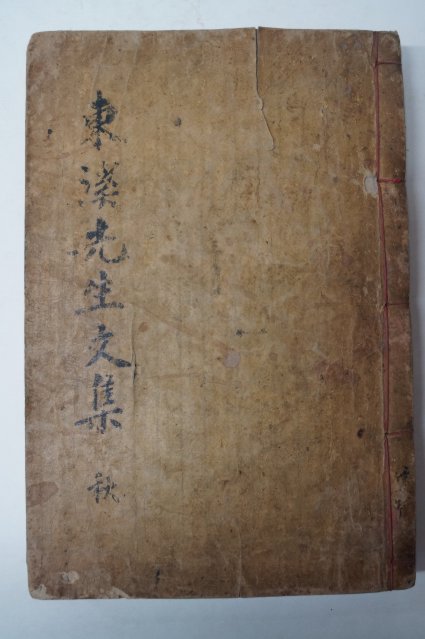 東溪先生文集 秋